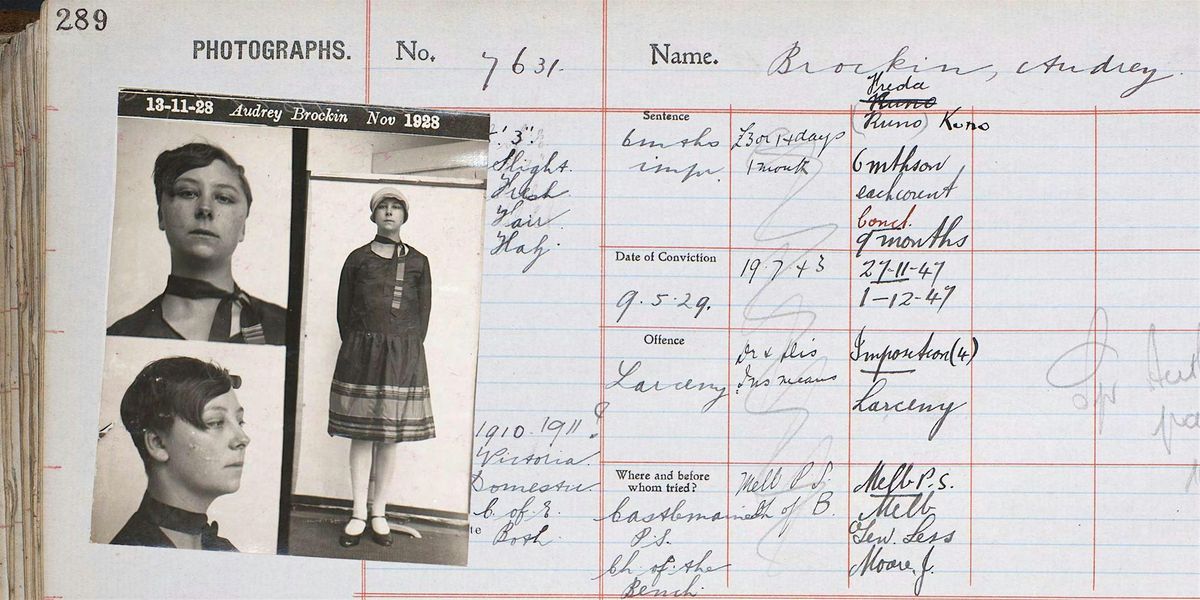 289
PHOTOGRAPHS.
No. 7631.
Name. Brockin, Audrey.
Freda
Kuno
(Kuno) Kuno
13-11-28 Audrey Brockin Nov 1928
' 3"
Slight
Fresh
Fair
Haz
1910 1911 ?
Victoria
Domestic
C. of E.
te Both
Sentence
6 mths
impr.
£3 or 14 days
1 month
6 mths on
each
concl.
9 months
Date of Conviction
9.5.29.
19.7.43
27-11-47
1-12-47
Offence
Larceny
Dr & Dis
Ins means
Imposition (4)
Larceny
Where and before
whom tried?
Castlemaine
P.S.
Ch of the
Bench
Melb P.S.
Ch of B
Melb P.S.
Melb
Gen. Sess
Moore, J.